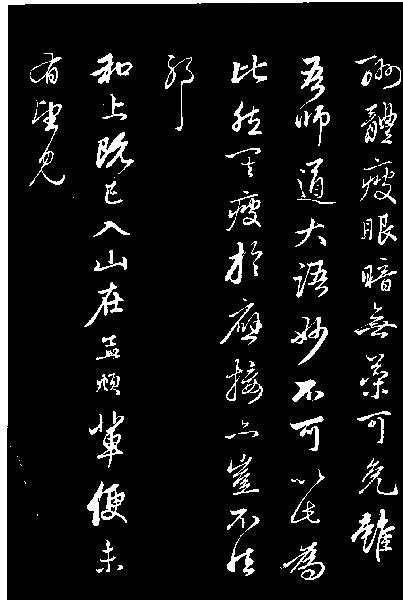 酬體瘦眼暗無藥可免雖
吾師道大語妙不可以此為
比然瘦於應接亦豈不佳
耶
和上既已入山在孟頫輩便未
有望見